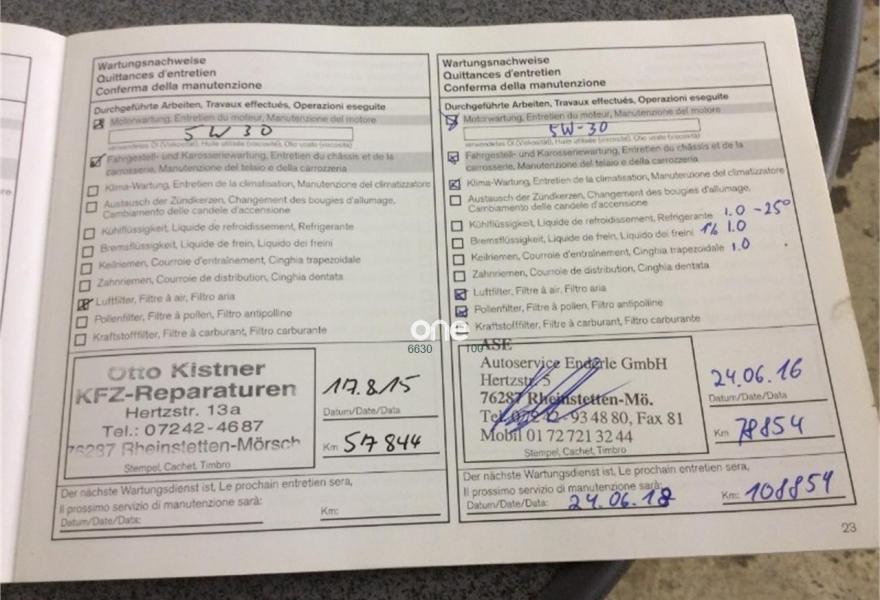 Wartungsnachweise
Quittances d'entretien
Conferma della manutenzione
Durchgeführte Arbeiten, Travaux effectués, Operazioni eseguite
Motorwartung, Entretien du moteur, Manutenzione del motore
5W30
verwendetes Öl (Viskosität), Huile utilisée (viscosité), Olio usato (viscosità)
Fahrgestell- und Karosseriewartung, Entretien du châssis et de la
carrosserie, Manutenzione del telaio e della carrozzeria
Klima-Wartung, Entretien de la climatisation, Manutenzione del climatizzatore
Austausch der Zündkerzen, Changement des bougies d'allumage,
Cambiamento delle candele d'accensione
Kühlflüssigkeit, Liquide de refroidissement, Refrigerante
Bremsflüssigkeit, Liquide de frein, Liquido dei freini
Keilriemen, Courroie d'entraînement, Cinghia trapezoidale
Zahnriemen, Courroie de distribution, Cinghia dentata
Luftfilter, Filtre à air, Filtro aria
Pollenfilter, Filtre à pollen, Filtro antipolline
Kraftstofffilter, Filtre à carburant, Filtro carburante
Otto Kistner
KFZ-Reparaturen
Hertzstr. 13a
Tel.: 07242-4687
76287 Rheinstetten-Mörsch
Stempel, Cachet, Timbro
17.8.15
Datum/Date/Data
Km 57844
Der nächste Wartungsdienst ist, Le prochain entretien sera,
Il prossimo servizio di manutenzione sarà:
Datum/Date/Data:
Km:
Wartungsnachweise
Quittances d'entretien
Conferma della manutenzione
Durchgeführte Arbeiten, Travaux effectués, Operazioni eseguite
Motorwartung, Entretien du moteur, Manutenzione del motore
5W-30
verwendetes Öl (Viskosität), Huile utilisée (viscosité), Olio usato (viscosità)
Fahrgestell- und Karosseriewartung, Entretien du châssis et de la
carrosserie, Manutenzione del telaio e della carrozzeria
Klima-Wartung, Entretien de la climatisation, Manutenzione del climatizzatore
Austausch der Zündkerzen, Changement des bougies d'allumage,
Cambiamento delle candele d'accensione
Kühlflüssigkeit, Liquide de refroidissement, Refrigerante 1.0 -25°
Bremsflüssigkeit, Liquide de frein, Liquido dei freini 1% 1.0
Keilriemen, Courroie d'entraînement, Cinghia trapezoidale 1.0
Zahnriemen, Courroie de distribution, Cinghia dentata
Luftfilter, Filtre à air, Filtro aria
Pollenfilter, Filtre à pollen, Filtro antipolline
Kraftstofffilter, Filtre à carburant, Filtro carburante
one
6630 100
ASE
Autoservice Enderle GmbH
Hertzstr. 5
76287 Rheinstetten-Mö.
Tel. 07242-93 48 80, Fax 81
Mobil 01 72 721 32 44
Stempel, Cachet, Timbro
24.06.16
Datum/Date/Data
Km 78854
Der nächste Wartungsdienst ist, Le prochain entretien sera,
Il prossimo servizio di manutenzione sarà:
Datum/Date/Data: 24.06.18 Km: 108854
23